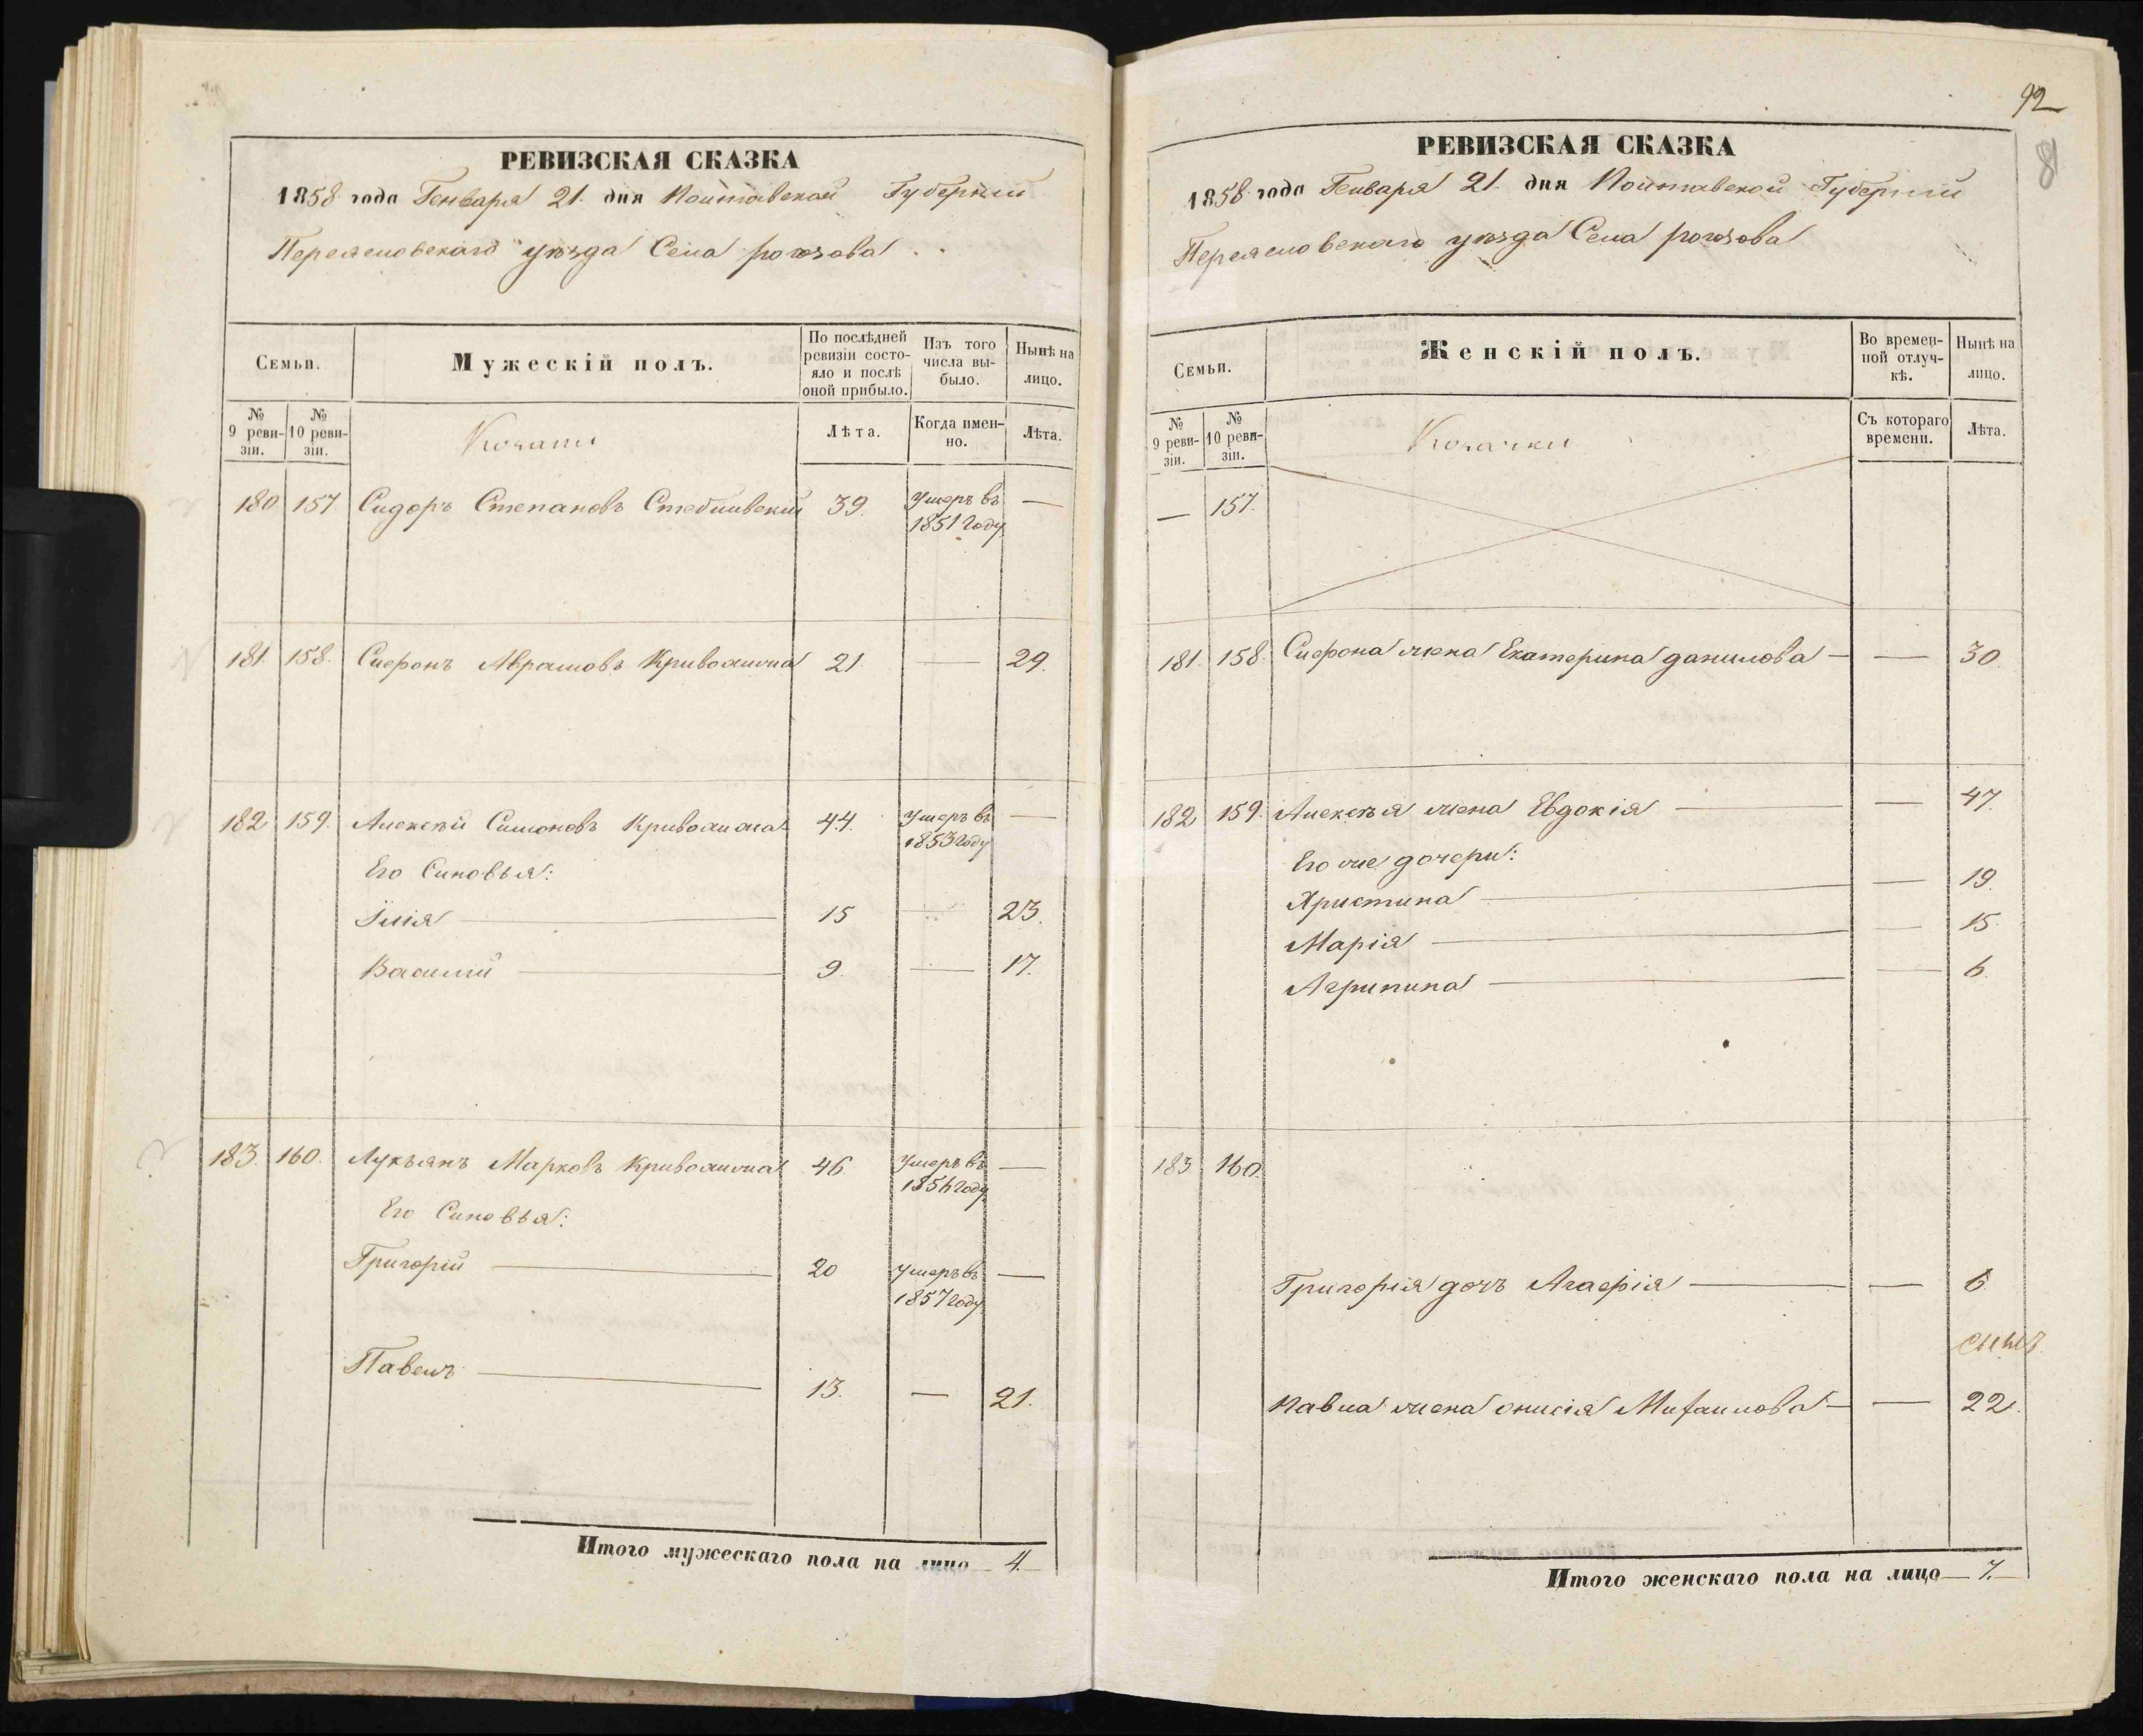 РЕВИЗСКАЯ СКАЗКА
1858 года Генваря 21. дня Полтавской Губернии
Переяславскаго уѣзда Села рогозова
Семьи.
Мужескій полъ.
По послѣдней ревизіи состо-
яло и послѣ оной прибыло.
Изъ того числа вы-
было.
Нынѣ на лицо.
№ 9 реви-
зіи.
№ 10 реви-
зіи.
Козаки
Лѣта.
Когда имен-
но.
Лѣта.
180 157 Сидоръ Степановъ 39. Умеръ въ —
1851 Году
181. 158. Сафронъ Аврамовъ 21 — 29.
182 159. Алексѣй Симоновъ 44. Умеръ въ —
1853 году
Его Сыновья:
Илія — 15 — 23.
Василій — 9. — 17.
183. 160. Лукьянъ Марковъ 46 Умеръ въ —
году
Его Сыновья:
Григорій — 20 Умеръ въ —
1857 году
Павелъ — 13. — 21.
Итого мужескаго пола на лицо — 4. —
92
8
РЕВИЗСКАЯ СКАЗКА
1858 года Генваря 21. дня Полтавской Губернии
Переяславскаго уѣзда Села рогозова
Семьи.
Женскій полъ.
Во времен-
ной отлуч-
кѣ.
Нынѣ на лицо.
№ 9 реви-
зіи.
№ 10 реви-
зіи.
Козачки
Съ котораго времени.
Лѣта.
— 157.
181. 158. жена Екатерина данилова — — 30
182 159. Алексѣя жена Евдокія — — 47.
Его же дочери:
Христина — — 19.
Марія — — 15.
Агрипина — — 6.
183 160.
Григорія дочъ Агафія — — 6.
Павла жена онисія Михаилова — — 22.
Итого женскаго пола на лицо — 7. —